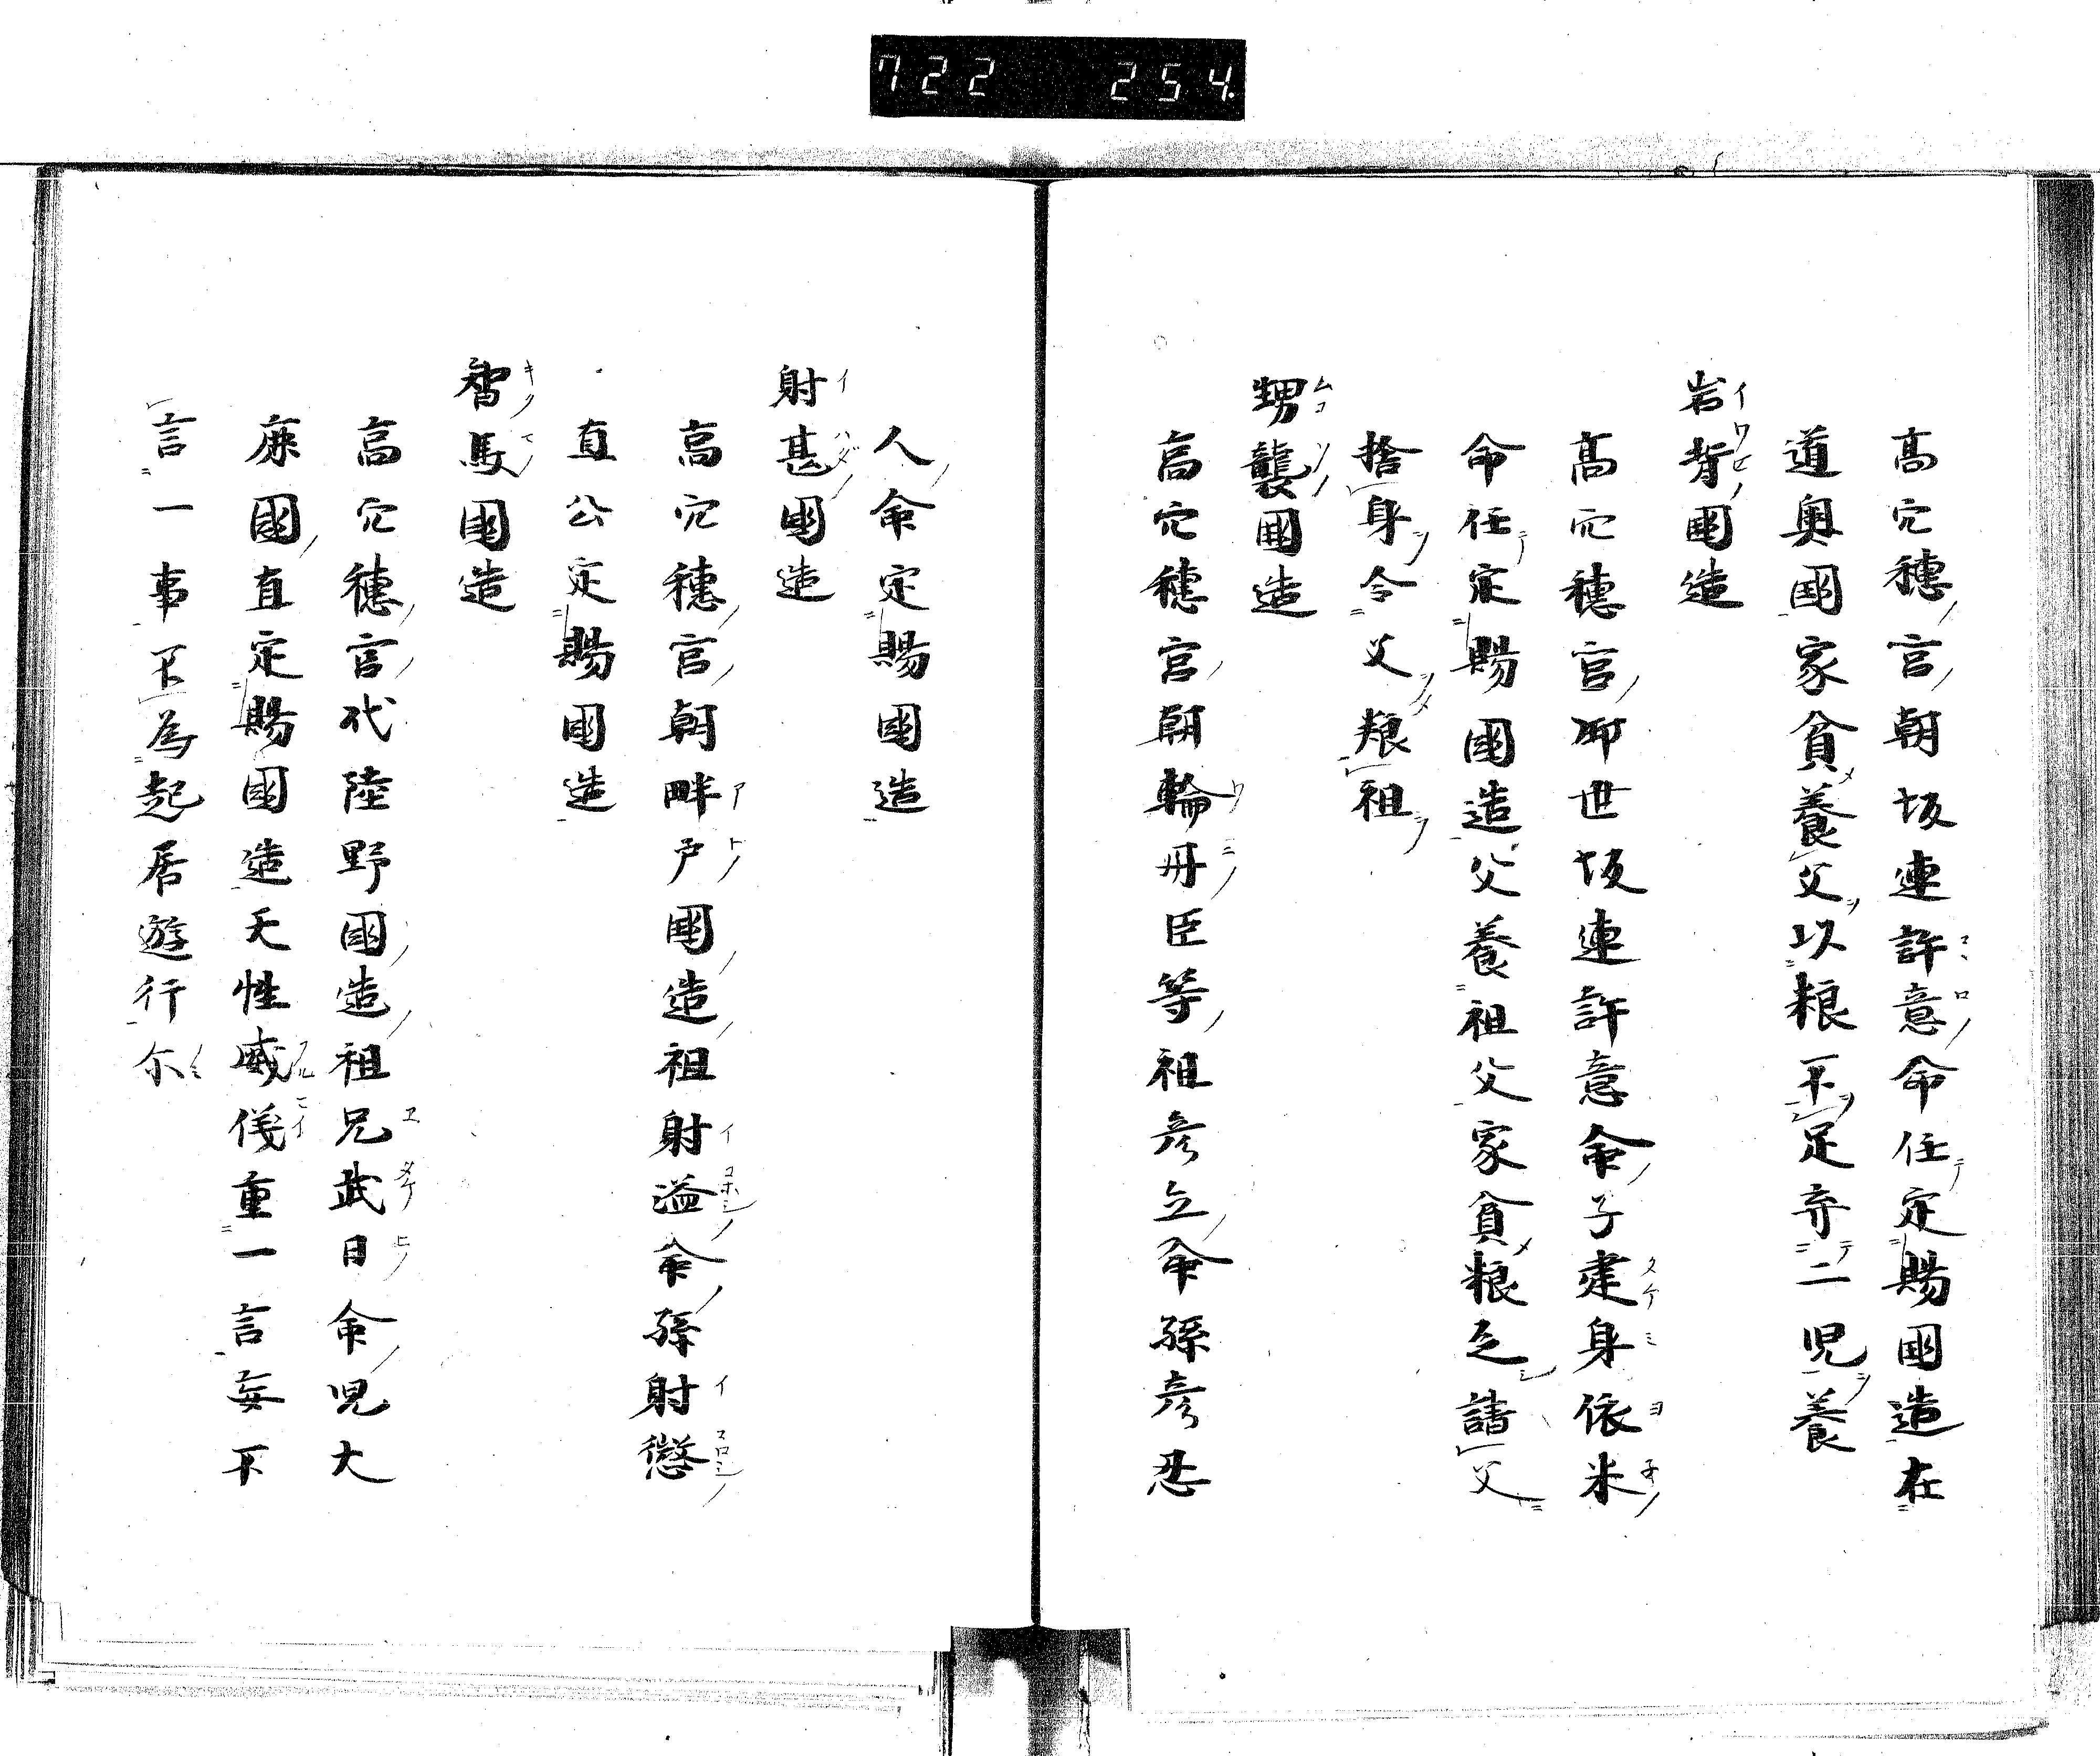 722 254
高穴穗宮朝坂連許意命任定賜國造在
道奥國家貧養父以粮不足弃二児養
岩背國造
髙穴穗宮御世坂連許意命子建身依米
命任定賜國造父養祖父家貧粮乏請父
捨身令父粮祖
甥襲國造
高穴穗宮朝輪丹臣等祖彦立命孫彦忍
人命定賜國造
射甚國造
高穴穗宮朝畔戸國造祖射溢命孫射懲
直公定賜國造
馬國造
高穴穗宮代陸野國造祖兄武日命児大
國直定賜國造天性威儀重一言妄不
言一事不為起居遊行尓